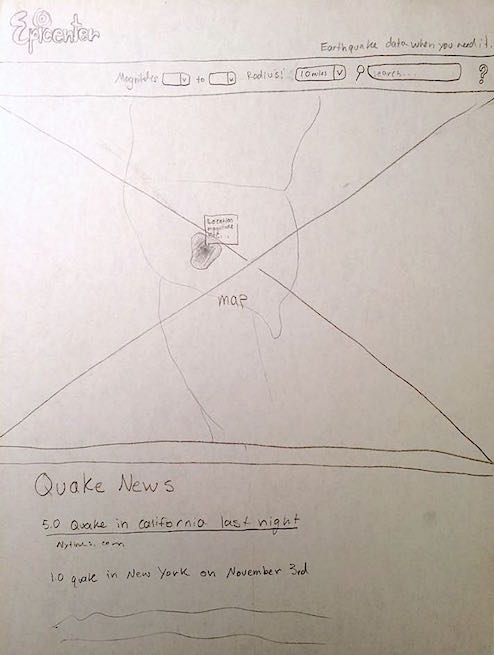 Epicenter
Earthquake data when you need it.
Magnitudes to Radius: 10 miles search... ?
Location
magnitude
map
Quake News
5.0 Quake in california last night
Nytimes.com
1.0 quake in New York on November 3rd